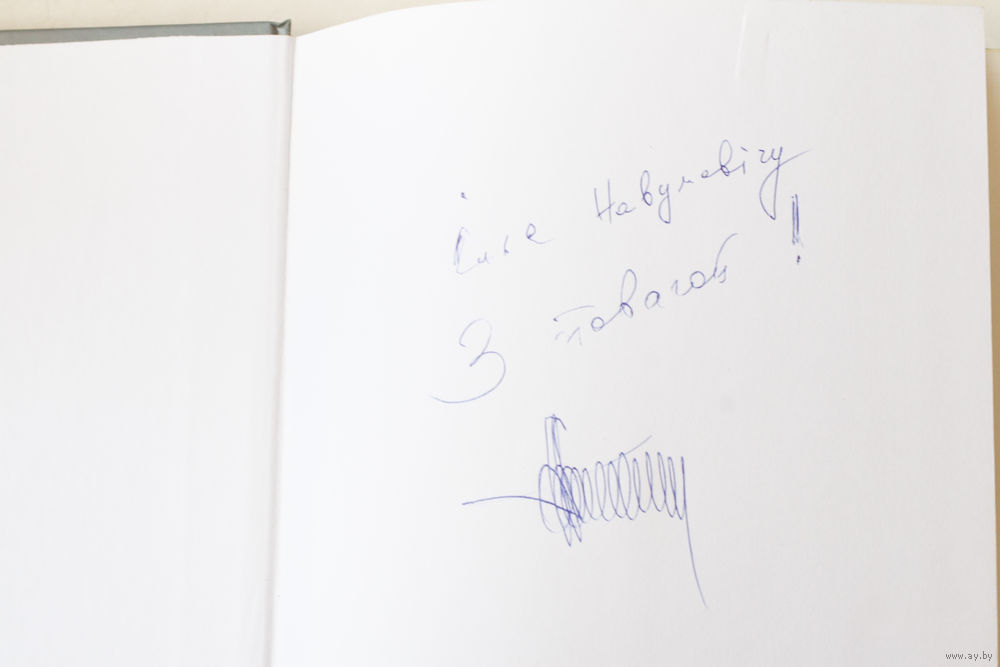 Ілье Навумовічу
З павагай!
www.ay.by